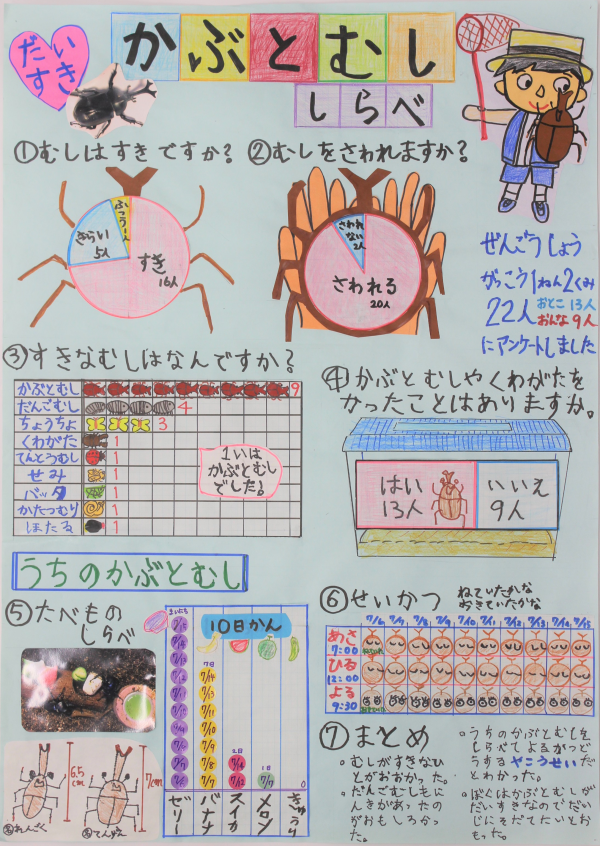 だい
すき
かぶとむし
しらべ
①むしはすきですか？
ふつう1人
きらい
5人
すき
16人
②むしをさわれますか？
さわれ
ない
2人
さわれる
20人
ぜんごうしょう
がっこう1ねん2くみ
22人 おとこ 13人
おんな 9人
にアンケートしました
③すきなむしはなんですか？
かぶとむし 9
だんごむし 4
ちょうちょ 3
くわがた 1
てんとうむし 1
せみ 1
バッタ 1
かたつむり 1
ほたる 1
1いは
かぶとむし
でした！
④かぶとむしやくわがたを
かったことはありますか。
はい
13人
いいえ
9人
うちのかぶとむし
⑤たべもの
しらべ
6.5cm
7cm
まいにち
10日かん
7日
2日
1日
0
ゼリー
バナナ
スイカ
メロン
きゅうり
⑥せいかつ
ねていたかな
おきていたかな
7/6 7/7 7/8 7/9 7/10 7/11 7/12 7/13 7/14 7/15
あさ
7:00
ひる
12:00
よる
9:30
⑦まとめ
。むしがすきなひ
とがおおかった。
。だんごむしもに
んきがあったの
がおもしろかっ
た。
。うちのかぶとむしを
しらべてよるかつど
うするやこうせいだ
とわかった。
。ぼくはかぶとむしが
だいすきなのでだい
じにそだてたいとお
もった。